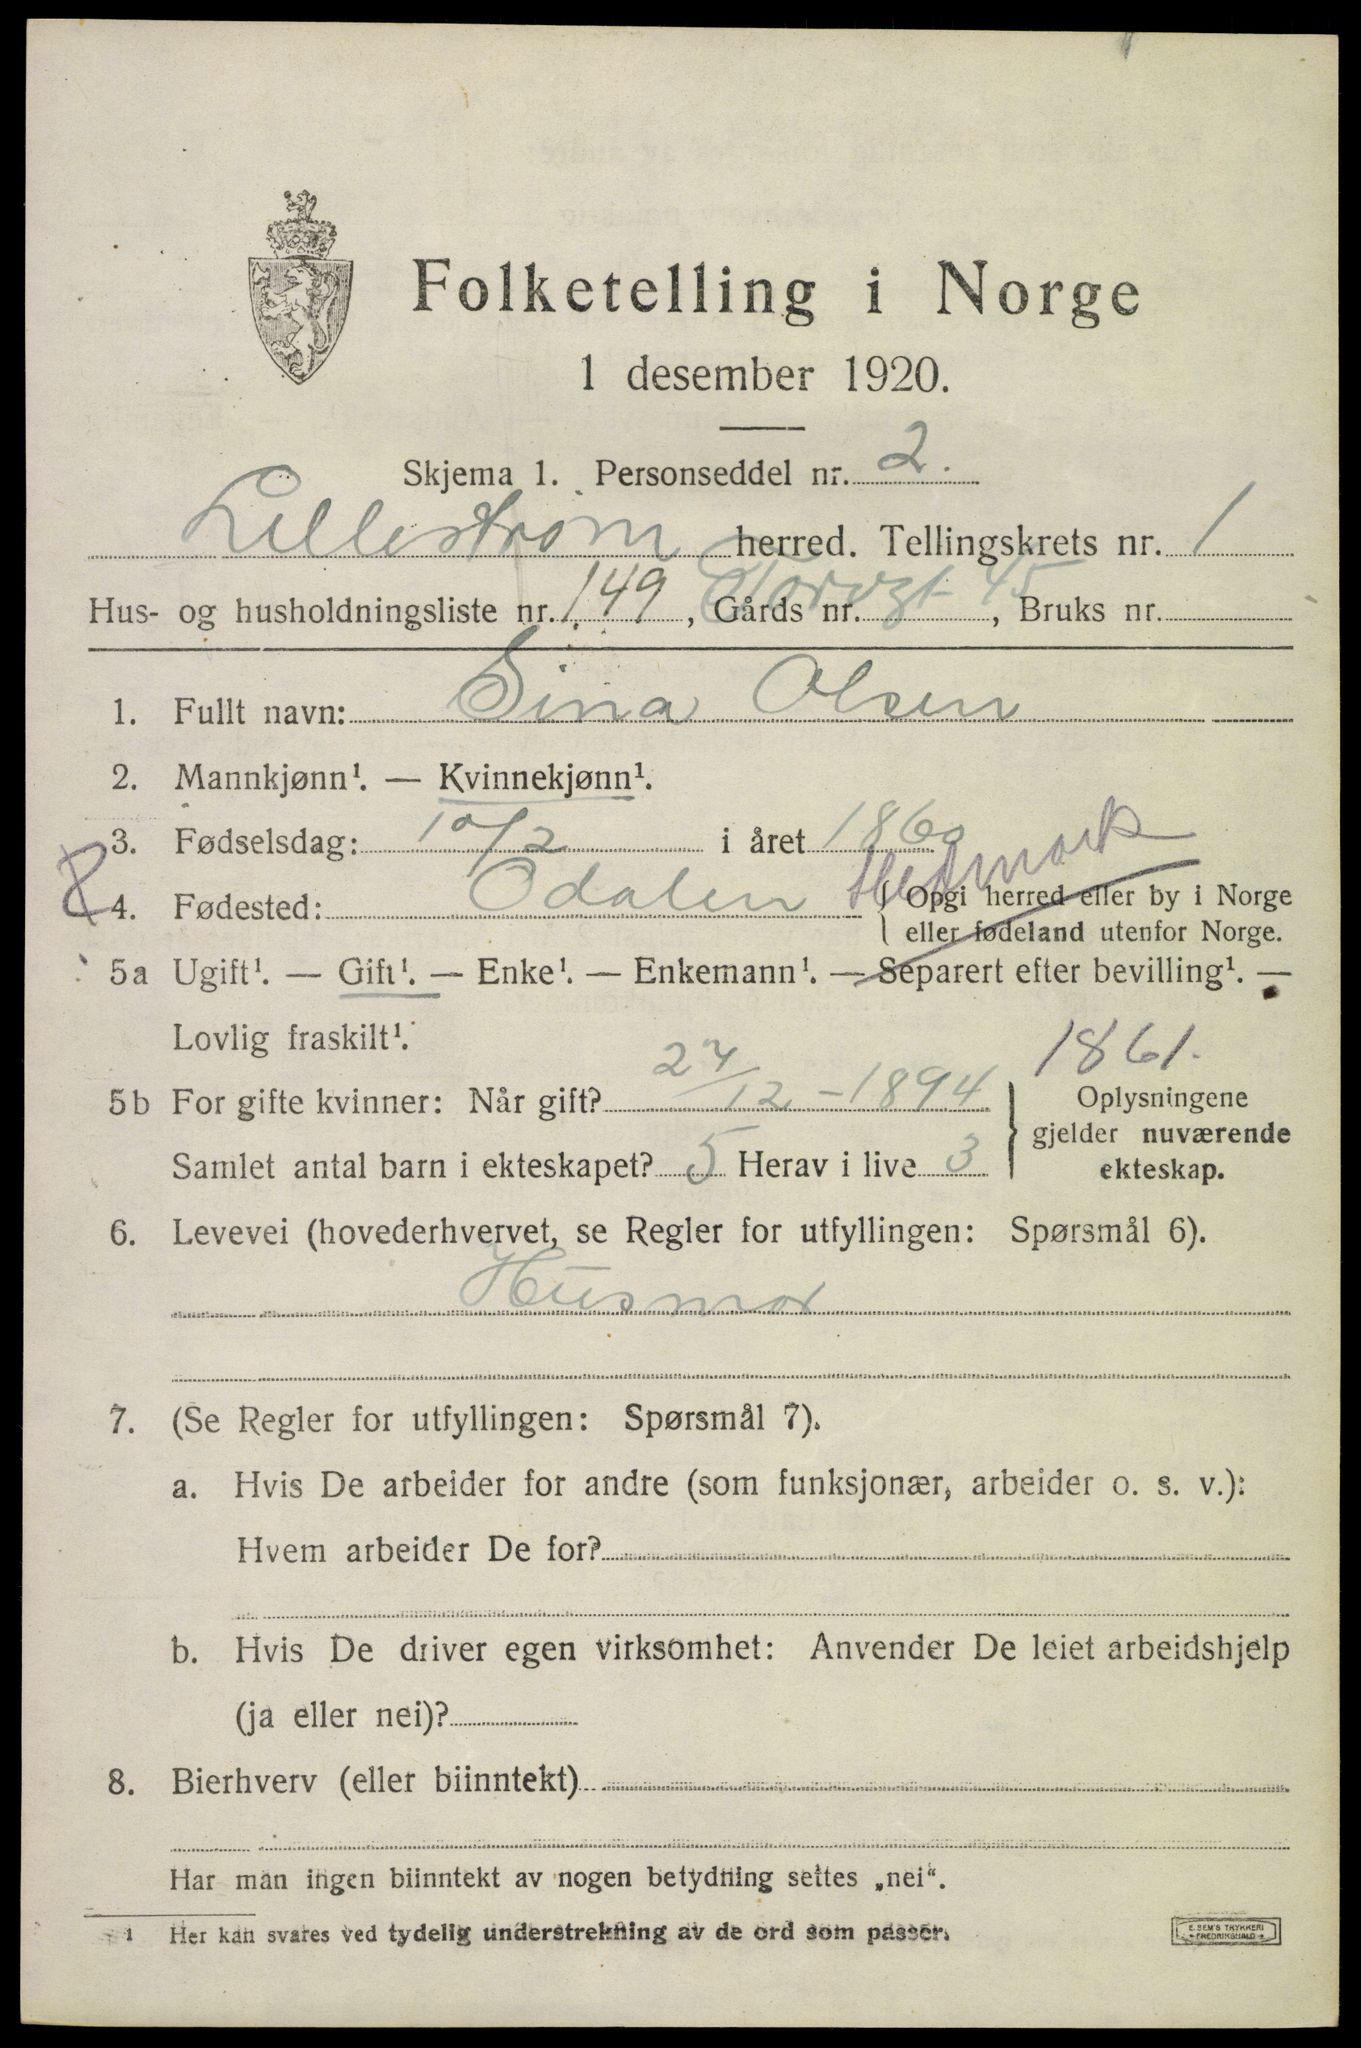 Folketelling i Norge
1 desember 1920.
Skjema 1. Personseddel nr. 2.
Lillestrøm herred. Tellingskrets nr. 1
Hus- og husholdningsliste nr. 149, Gårds nr. Torvgt 45, Bruks nr.
1. Fullt navn: Sina Olsen
2. Mannkjønn¹. — Kvinnekjønn¹.
3. Fødselsdag: 10/2 i året 1860
Hedmark
4. Fødested: Odalen Opgi herred eller by i Norge
eller fødeland utenfor Norge.
5a Ugift¹. — Gift¹. — Enke¹. — Enkemann¹. — Separert efter bevilling¹. —
Lovlig fraskilt¹.
1861.
5b For gifte kvinner: Når gift? 27/12 - 1894 Oplysningene
gjelder nuværende
Samlet antal barn i ekteskapet? 5 Herav i live 3 ekteskap.
6. Levevei (hovederhvervet, se Regler for utfyllingen: Spørsmål 6).
Husmor
7. (Se Regler for utfyllingen: Spørsmål 7).
a. Hvis De arbeider for andre (som funksjonær, arbeider o. s. v.):
Hvem arbeider De for?
b. Hvis De driver egen virksomhet: Anvender De leiet arbeidshjelp
(ja eller nei)?
8. Bierhverv (eller biinntekt)
Har man ingen biinntekt av nogen betydning settes „nei“.
1 Her kan svares ved tydelig understrekning av de ord som passer.
E. SEM'S TRYKKERI
FREDRIKSHALD